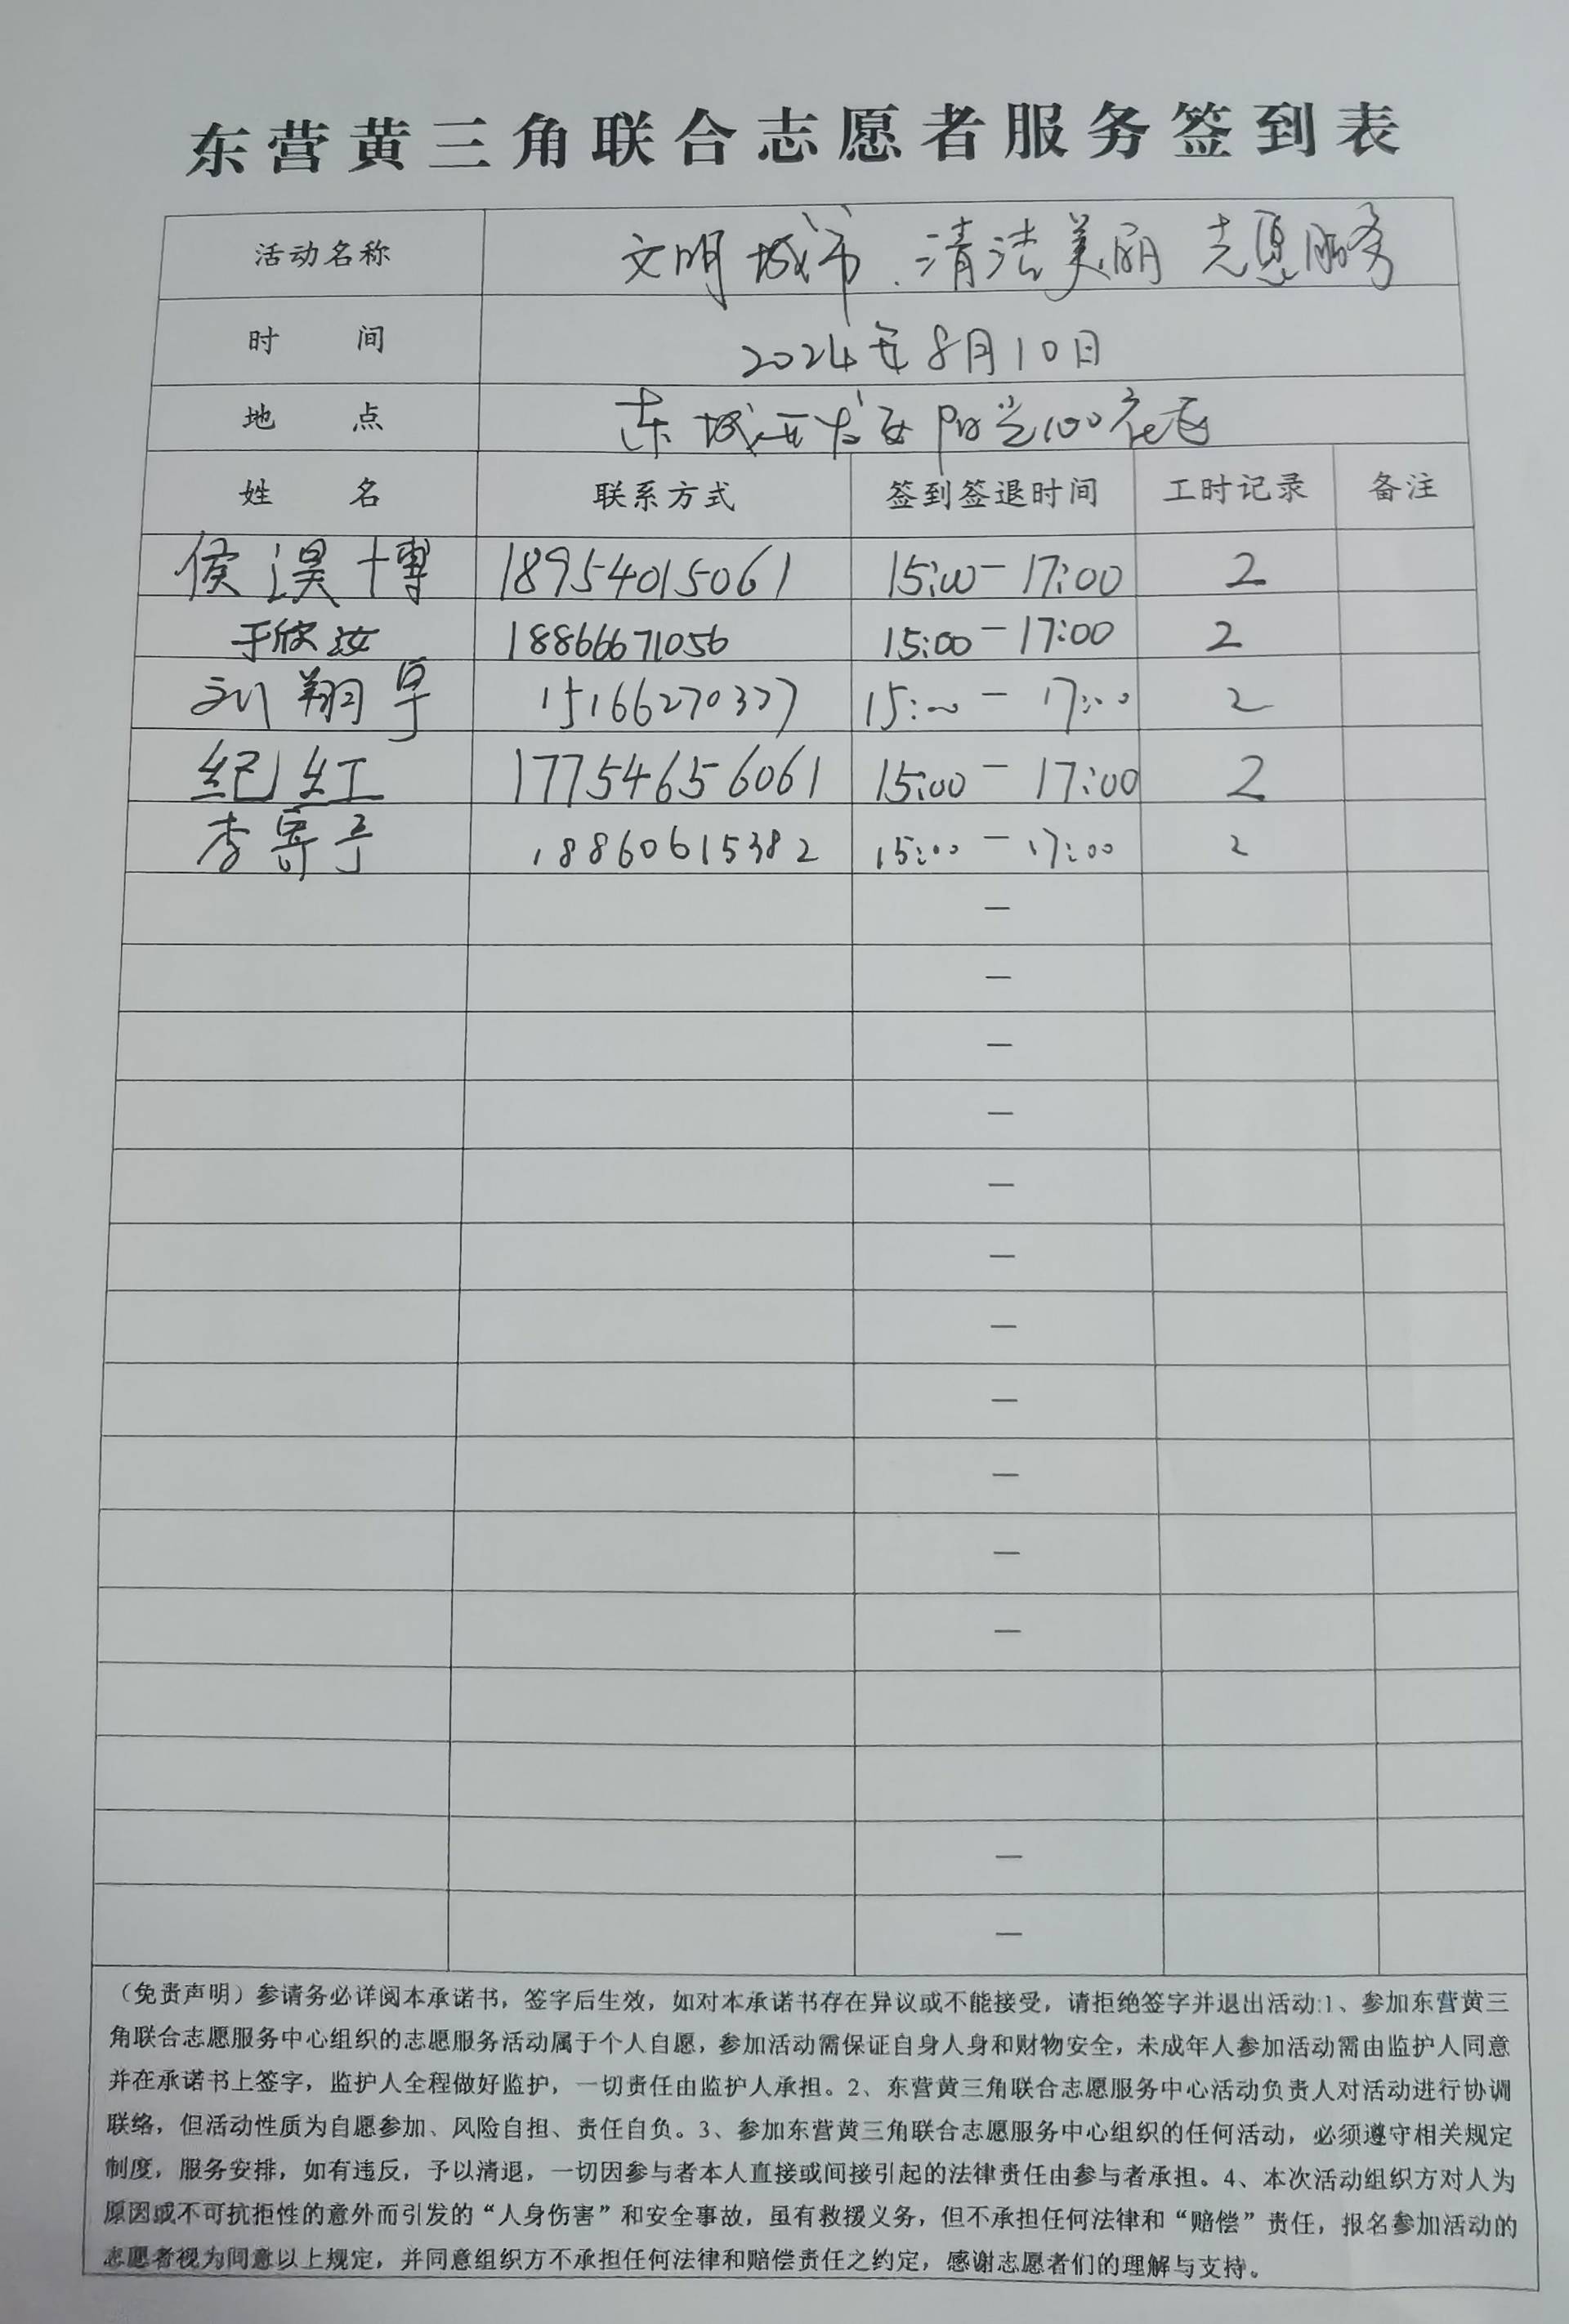 东营黄三角联合志愿者服务签到表
活动名称 文明城市.清洁美丽 志愿服务
时间 2024年8月10日
地点 东城 阳光100花园
姓名 联系方式 签到签退时间 工时记录 备注
侯淏博 18954015061 15:00-17:00 2
于欣汝 18866671056 15:00-17:00 2
刘翔宇 15166270327 15:00-17:00 2
纪红 17754656061 15:00-17:00 2
李寄予 18860615382 15:00-17:00 2
—
—
—
—
—
—
—
—
—
—
—
—
—
(免责声明)参请务必详阅本承诺书，签字后生效，如对本承诺书存在异议或不能接受，请拒绝签字并退出活动:1、参加东营黄三
角联合志愿服务中心组织的志愿服务活动属于个人自愿，参加活动需保证自身人身和财物安全，未成年人参加活动需由监护人同意
并在承诺书上签字，监护人全程做好监护，一切责任由监护人承担。2、东营黄三角联合志愿服务中心活动负责人对活动进行协调
联络，但活动性质为自愿参加、风险自担、责任自负。3、参加东营黄三角联合志愿服务中心组织的任何活动，必须遵守相关规定
制度，服务安排，如有违反，予以清退，一切因参与者本人直接或间接引起的法律责任由参与者承担。4、本次活动组织方对人为
原因或不可抗拒性的意外而引发的“人身伤害”和安全事故，虽有救援义务，但不承担任何法律和“赔偿”责任，报名参加活动的
志愿者视为同意以上规定，并同意组织方不承担任何法律和赔偿责任之约定，感谢志愿者们的理解与支持。